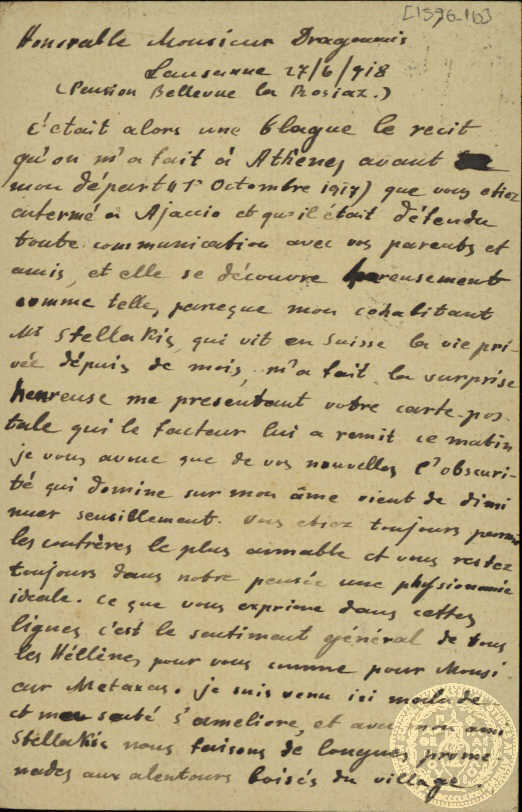 [1596-1b]
Honorable Monsieur Dragoumis
Lausanne 27/6/918
(Pension Bellevue la Rosiaz.)
C'était alors une blague le recit
qu'on m'a fait à Athènes avant
mon départ (1r Octombre 1917) que vous etiez
interné à Ajaccio et qu'il était défendu
toute communication avec vos parents et
amis, et elle se découvre heureusement
comme telle, parceque mon cohabitant
Mr Stellakis, qui vit en Suisse la vie pri-
vée dépuis de mois, m'a fait la surprise
heureuse me presentant votre carte-pos-
tale qui le facteur lui a remit ce matin
je vous avoue que de vos nouvelles l'obscuri-
té qui domine sur mon âme vient de dimi
nuer sensillement. Vous etiez toujours parmi
les contrères le plus aimable et vous restez
toujours dans notre pensée une physionomie
ideale. Ce que vous exprime dans cettes
lignes c'est le sentiment général de tous
les Héllènes pour vous comme pour Monsi
eur Metaxas. je suis venu ici malade
et ma santé s'ameliore, et avec mon ami
Stellakis nous faisons de longues prome
nades aux alentours boisés du village.